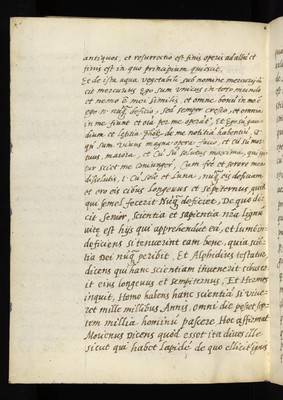 antiquos, et resurrectio est finis operis ad albū et
finis est in quo principium quiescit.
Et de ista aqua vegetabili sub nomine mercurij di
cit mercurius Ego sum vnicus in toto mundo
et nemo ē mei similis, et omne bonū in me ē
ego nūq̃ deficio, sed semper cresco, et omnia
in me fiunt et oīa per me operāt, Et Ego sū gau
dium et letitia de me notitiā habentiū, q
qñ sum vinus magna opera facio, et cū sū mor
tuus, maiora, et cū sū solutus maxima, qui igi
tur scilt me coniunger, cum fre et sorore mea
dissolutis, i. cū sole et Luna, nūq̃ eis deficiam
et ero eis cibus longeuus et sēpiternus, quod
qui semel fecerit Nūq̃ deficeret, De quo di
cit senior, scientia et sapientia nr̃a Lignū
vite est hijs qui apprehendūt eā, et lumē in
deficiens si tenuerint eam bene, quia scie
tia Dei nūq̃ peribit, Et Alphidius testatur
dicens qui hanc scientiam inuenerit cibus er
it eius longeuus et sempiternus, Et Hermes
inquit, Homo habens hanc scientiā si viue
ret mille millibus Annis, omni die posset sep
tem millia hominū pascere Hoc affirmat
Morienus dicens quod esset ita diues ille
sicut qui habet Lapidē de quo ellicit ignis